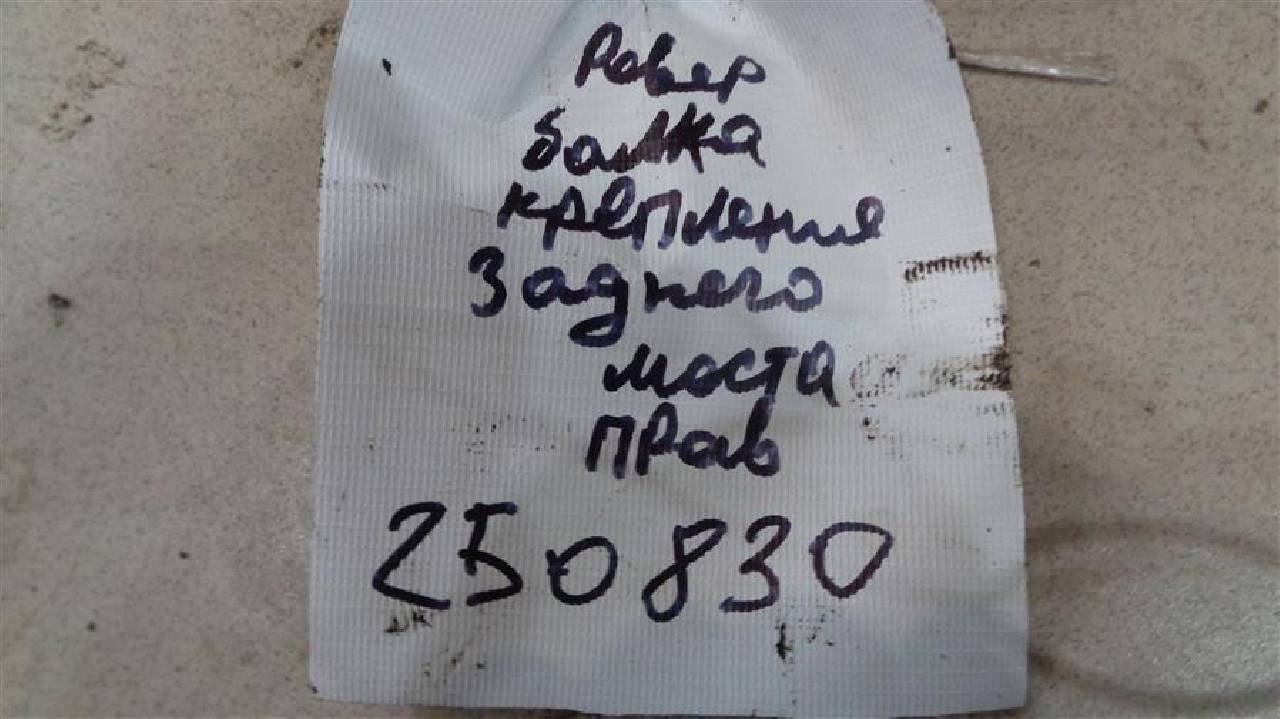 Ровер
балка
крепления
Заднего
моста
прав
250830